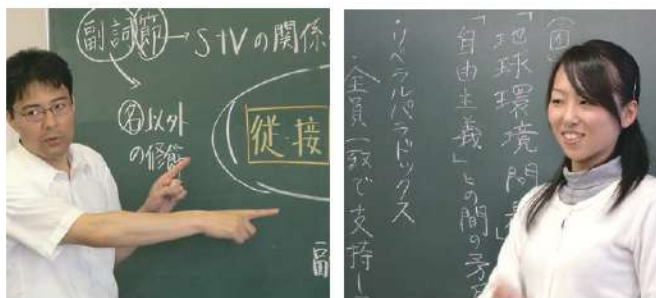 副詞節→S+Vの関係
名以外
の修飾
従・接
副
④
「地球環境問
「自由主義」との間の矛
・リベラルパラドックス
・全員一致で支持し